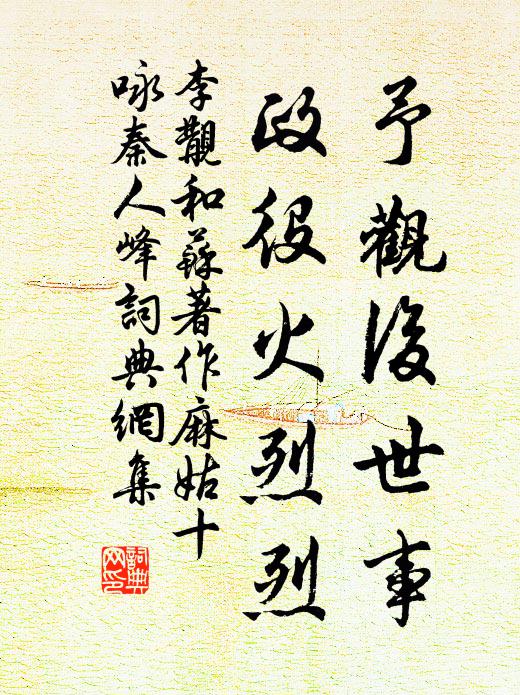 予觀後世事
政役火烈烈
李覯和蘇著作麻姑十
咏秦人峰詞典網集
詞典网印